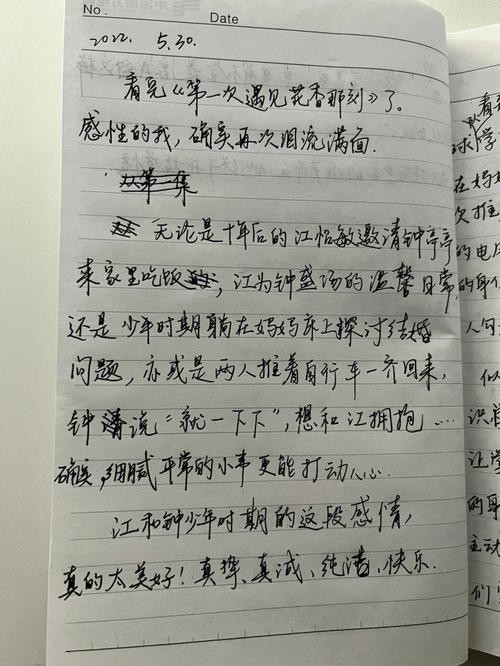 No.
Date
2022. 5.30.
看完《第一次遇见花香那刻》了。
感性的我，确实再次泪流满面.
从第一集
无论是十年后的江怡敏邀请钟亭亭
来家里吃饭，江为钟盛汤的温馨日常，
还是少年时期躺在妈妈床上探讨结婚
问题，亦或是两人推着自行车一齐回来，
钟说“就一下下”，想和江拥抱……
确实，细腻平常的小事更能打动人心.
江和钟少年时期的这段感情，
真的太美好！真挚、真诚、纯洁、快乐.
看
球学
在妈妈
次推
的电
的身
人句
似
识
让学
的身
主动
们